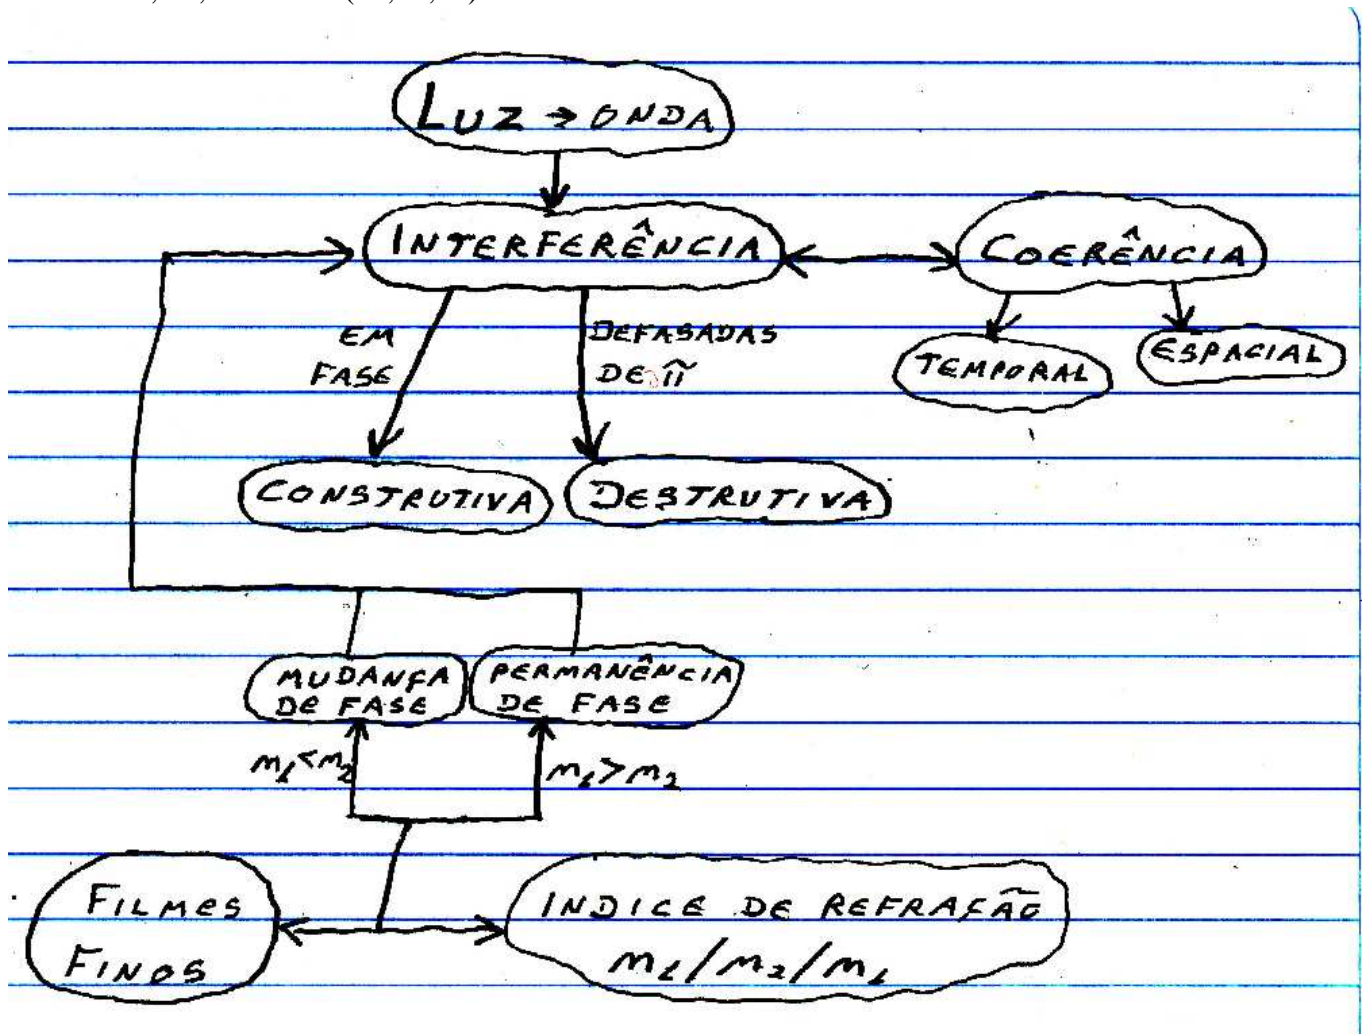 LUZ → ONDA
INTERFERÊNCIA
COERÊNCIA
EM
FASE
DEFASADAS
DE π
TEMPORAL
ESPACIAL
CONSTRUTIVA
DESTRUTIVA
MUDANÇA
DE FASE
PERMANÊNCIA
DE FASE
n₁<n₂
n₁>n₂
FILMES
FINOS
INDICE DE REFRAÇÃO
n₁/n₂/n₁